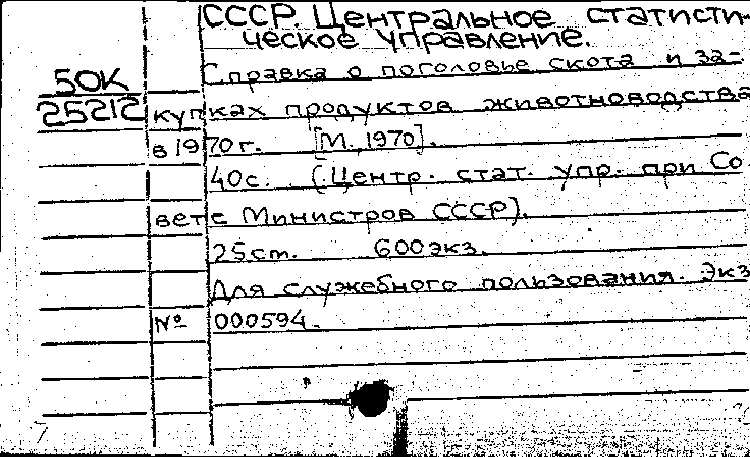 СССР. Центральное статисти-
ческое управление.
50К
25212
Справка о поголовье скота и за-
купках продуктов животноводства
в 1970г. [М., 1970].
40с. (Центр. стат. упр. при Со
вете Министров СССР).
25см. 600экз.
Для служебного пользования. Экз
№ 000594.